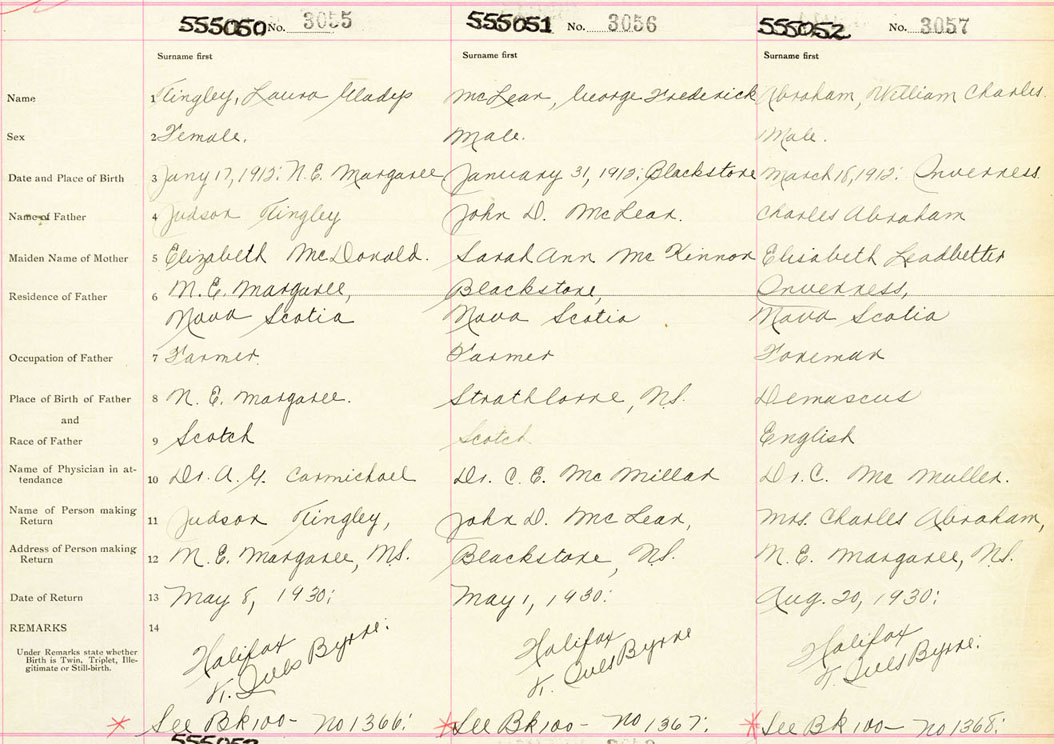 555050 No. 3055 555051 No. 3056 555052 No. 3057
Surname first Surname first Surname first
Name 1 Tingley, Laura Gladys McLean, George Frederick Abraham, William Charles.
Sex 2 Female. Male. Male.
Date and Place of Birth 3 Jany 17, 1912: N.E. Margaree January 31, 1912: Blackstone March 18, 1912: Inverness.
Name of Father 4 Judson Tingley John D. McLean. Charles Abraham
Maiden Name of Mother 5 Elizabeth McDonald. Sarah Ann McKinnon Elisabeth Leadbetter
Residence of Father 6 N.E. Margaree, Blackstone, Inverness,
Nova Scotia Nova Scotia Nova Scotia
Occupation of Father 7 Farmer Farmer Foreman
Place of Birth of Father 8 N. E. Margaree. Strathlorne, N.S. Demascus
and
Race of Father 9 Scotch Scotch English
Name of Physician in at-
tendance 10 Dr. A. G. Carmichael Dr. C. E. McMillan Dr. C. McMullen.
Name of Person making
Return 11 Judson Tingley, John D. McLean, Mrs. Charles Abraham,
Address of Person making
Return 12 N.E. Margaree, N.S. Blackstone, N.S. N.E. Margaree, N.S.
Date of Return 13 May 8, 1930: May 1, 1930: Aug. 20, 1930:
REMARKS 14
Under Remarks state whether
Birth is Twin, Triplet, Ille-
gitimate or Still-birth.
Halifax Halifax Halifax
Byrne: Byrne Byrne:
See Bk 100 - No 1366: See Bk 100 - No 1367: See Bk 100 - No 1368: